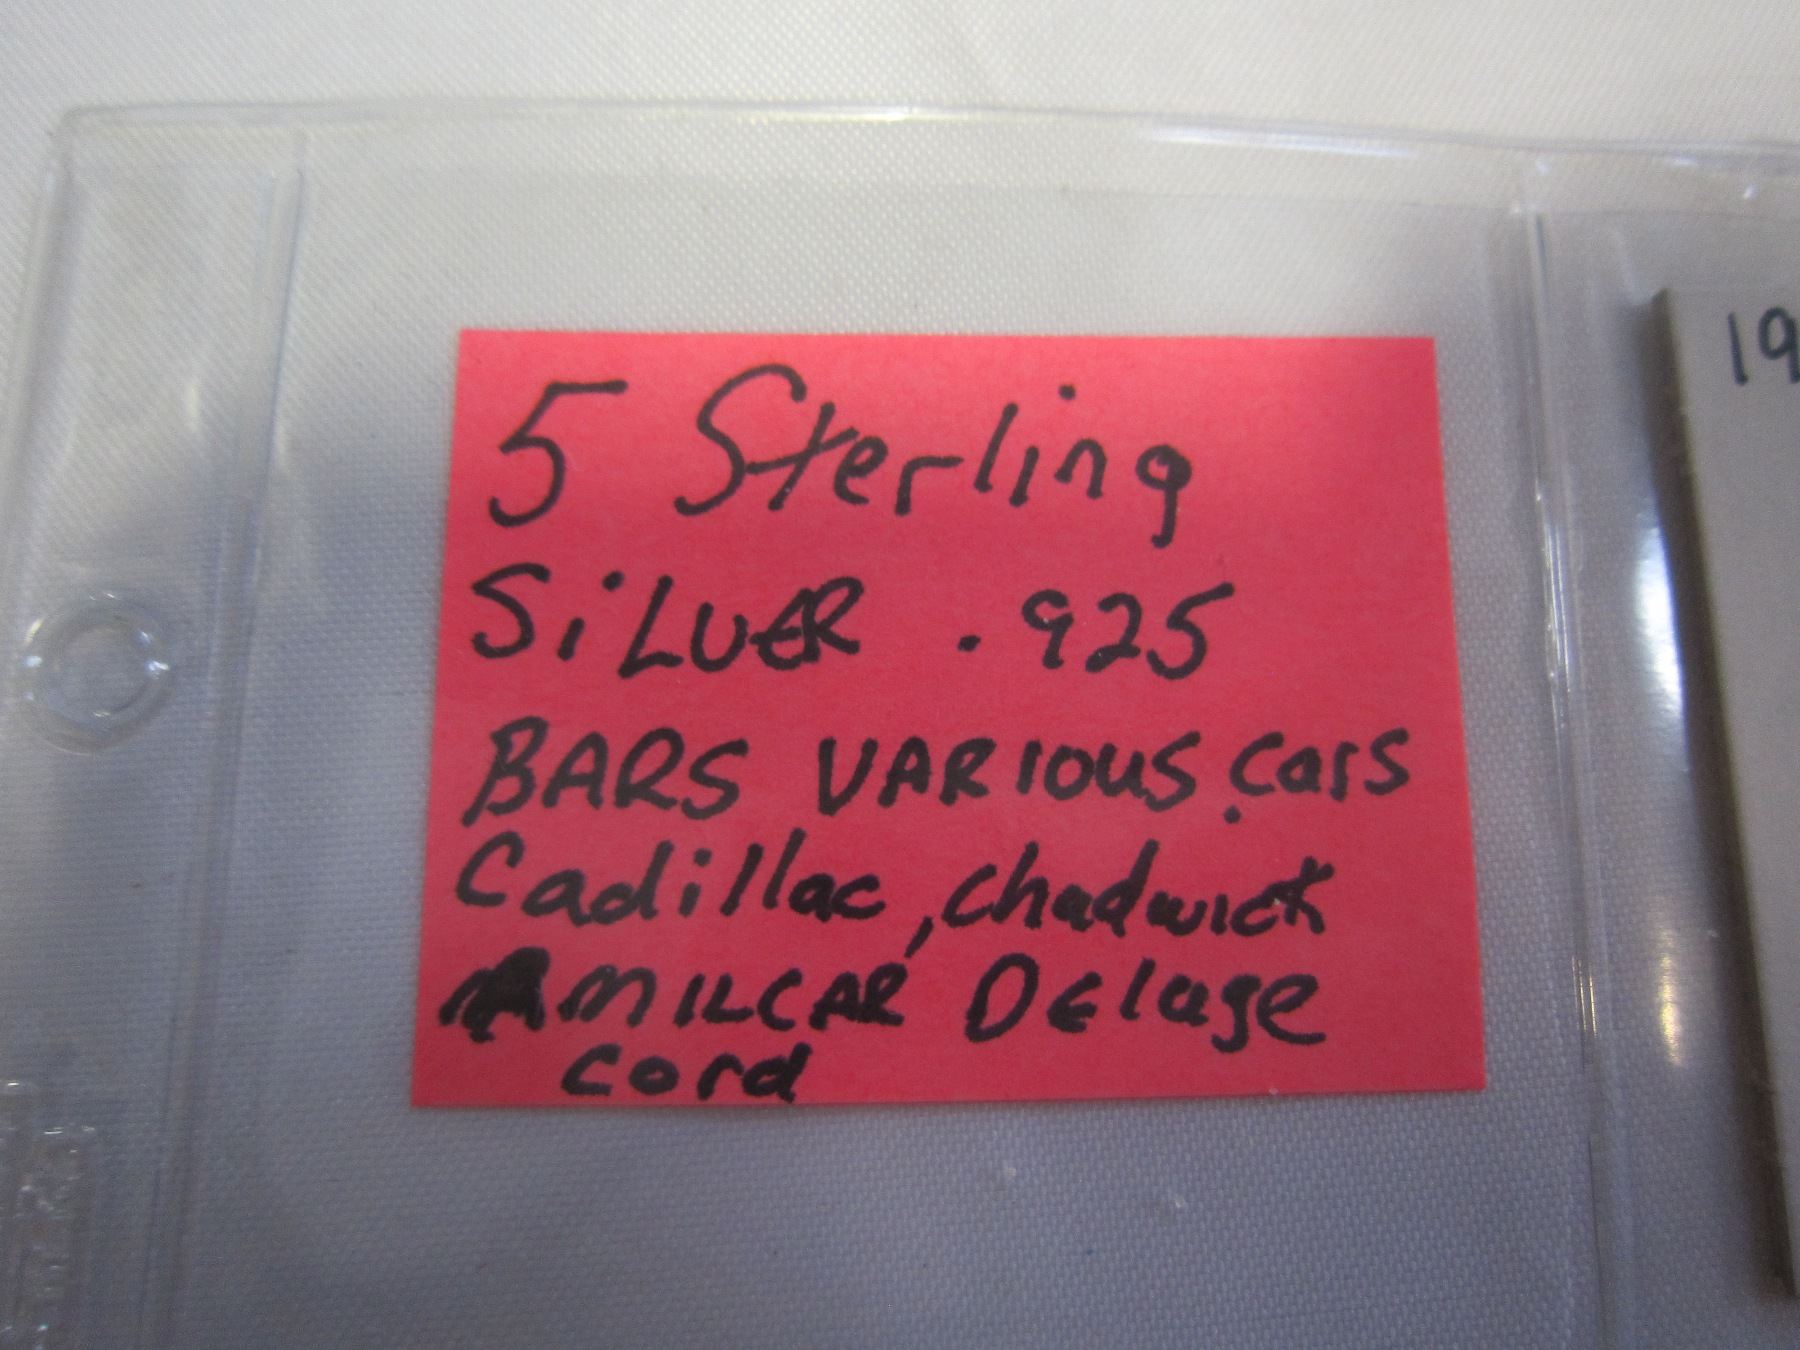 5 Sterling
SiLVER .925
BARS VARIOUS Cars
Cadillac, Chadwick
AMILCAR, DElage
cord
19